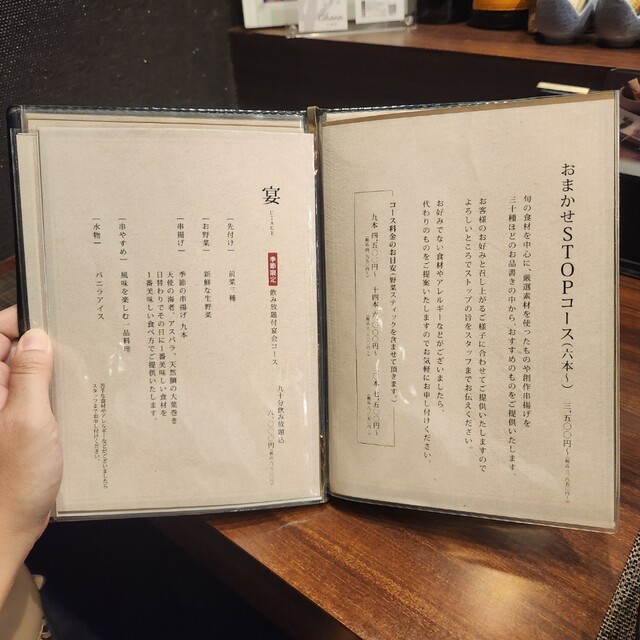 おまかせSTOPコース(六本〜) 三、五〇〇円〜
旬の食材を中心に、厳選素材を使ったものや創作串揚げを
三十種ほどのお品書きの中から、おすすめのものをご提供いたします。
お客様のお好みと召し上がるご様子に合わせてご提供いたしますので
よろしいところでストップの旨をスタッフまでお伝えください。
お好みでない食材やアレルギーなどがございましたら、
代わりのものをご提案いたしますのでお気軽にお申し付けください。
コース料金のお目安(野菜スティックを含ませて頂きます)
九本 四、五〇〇円〜 十四本 六、〇〇〇円〜 本 七、五〇〇円〜
宴
季節限定 飲み放題付宴会コース
九十分飲み放題込
六、〇〇〇円
|先付け| 前菜二種
|お野菜| 新鮮な生野菜
|串揚げ| 季節の串揚げ 九本
天使の海老、アスパラ、天然鯛の大葉巻き
日替わりでその日に1番美味しい食材を
1番美味しい食べ方でご提供いたします。
|串やすめ| 風味を楽しむ一品料理
|水物| バニラアイス
苦手な食材やアレルギーなどがございましたら
スタッフまでお申し付けください。